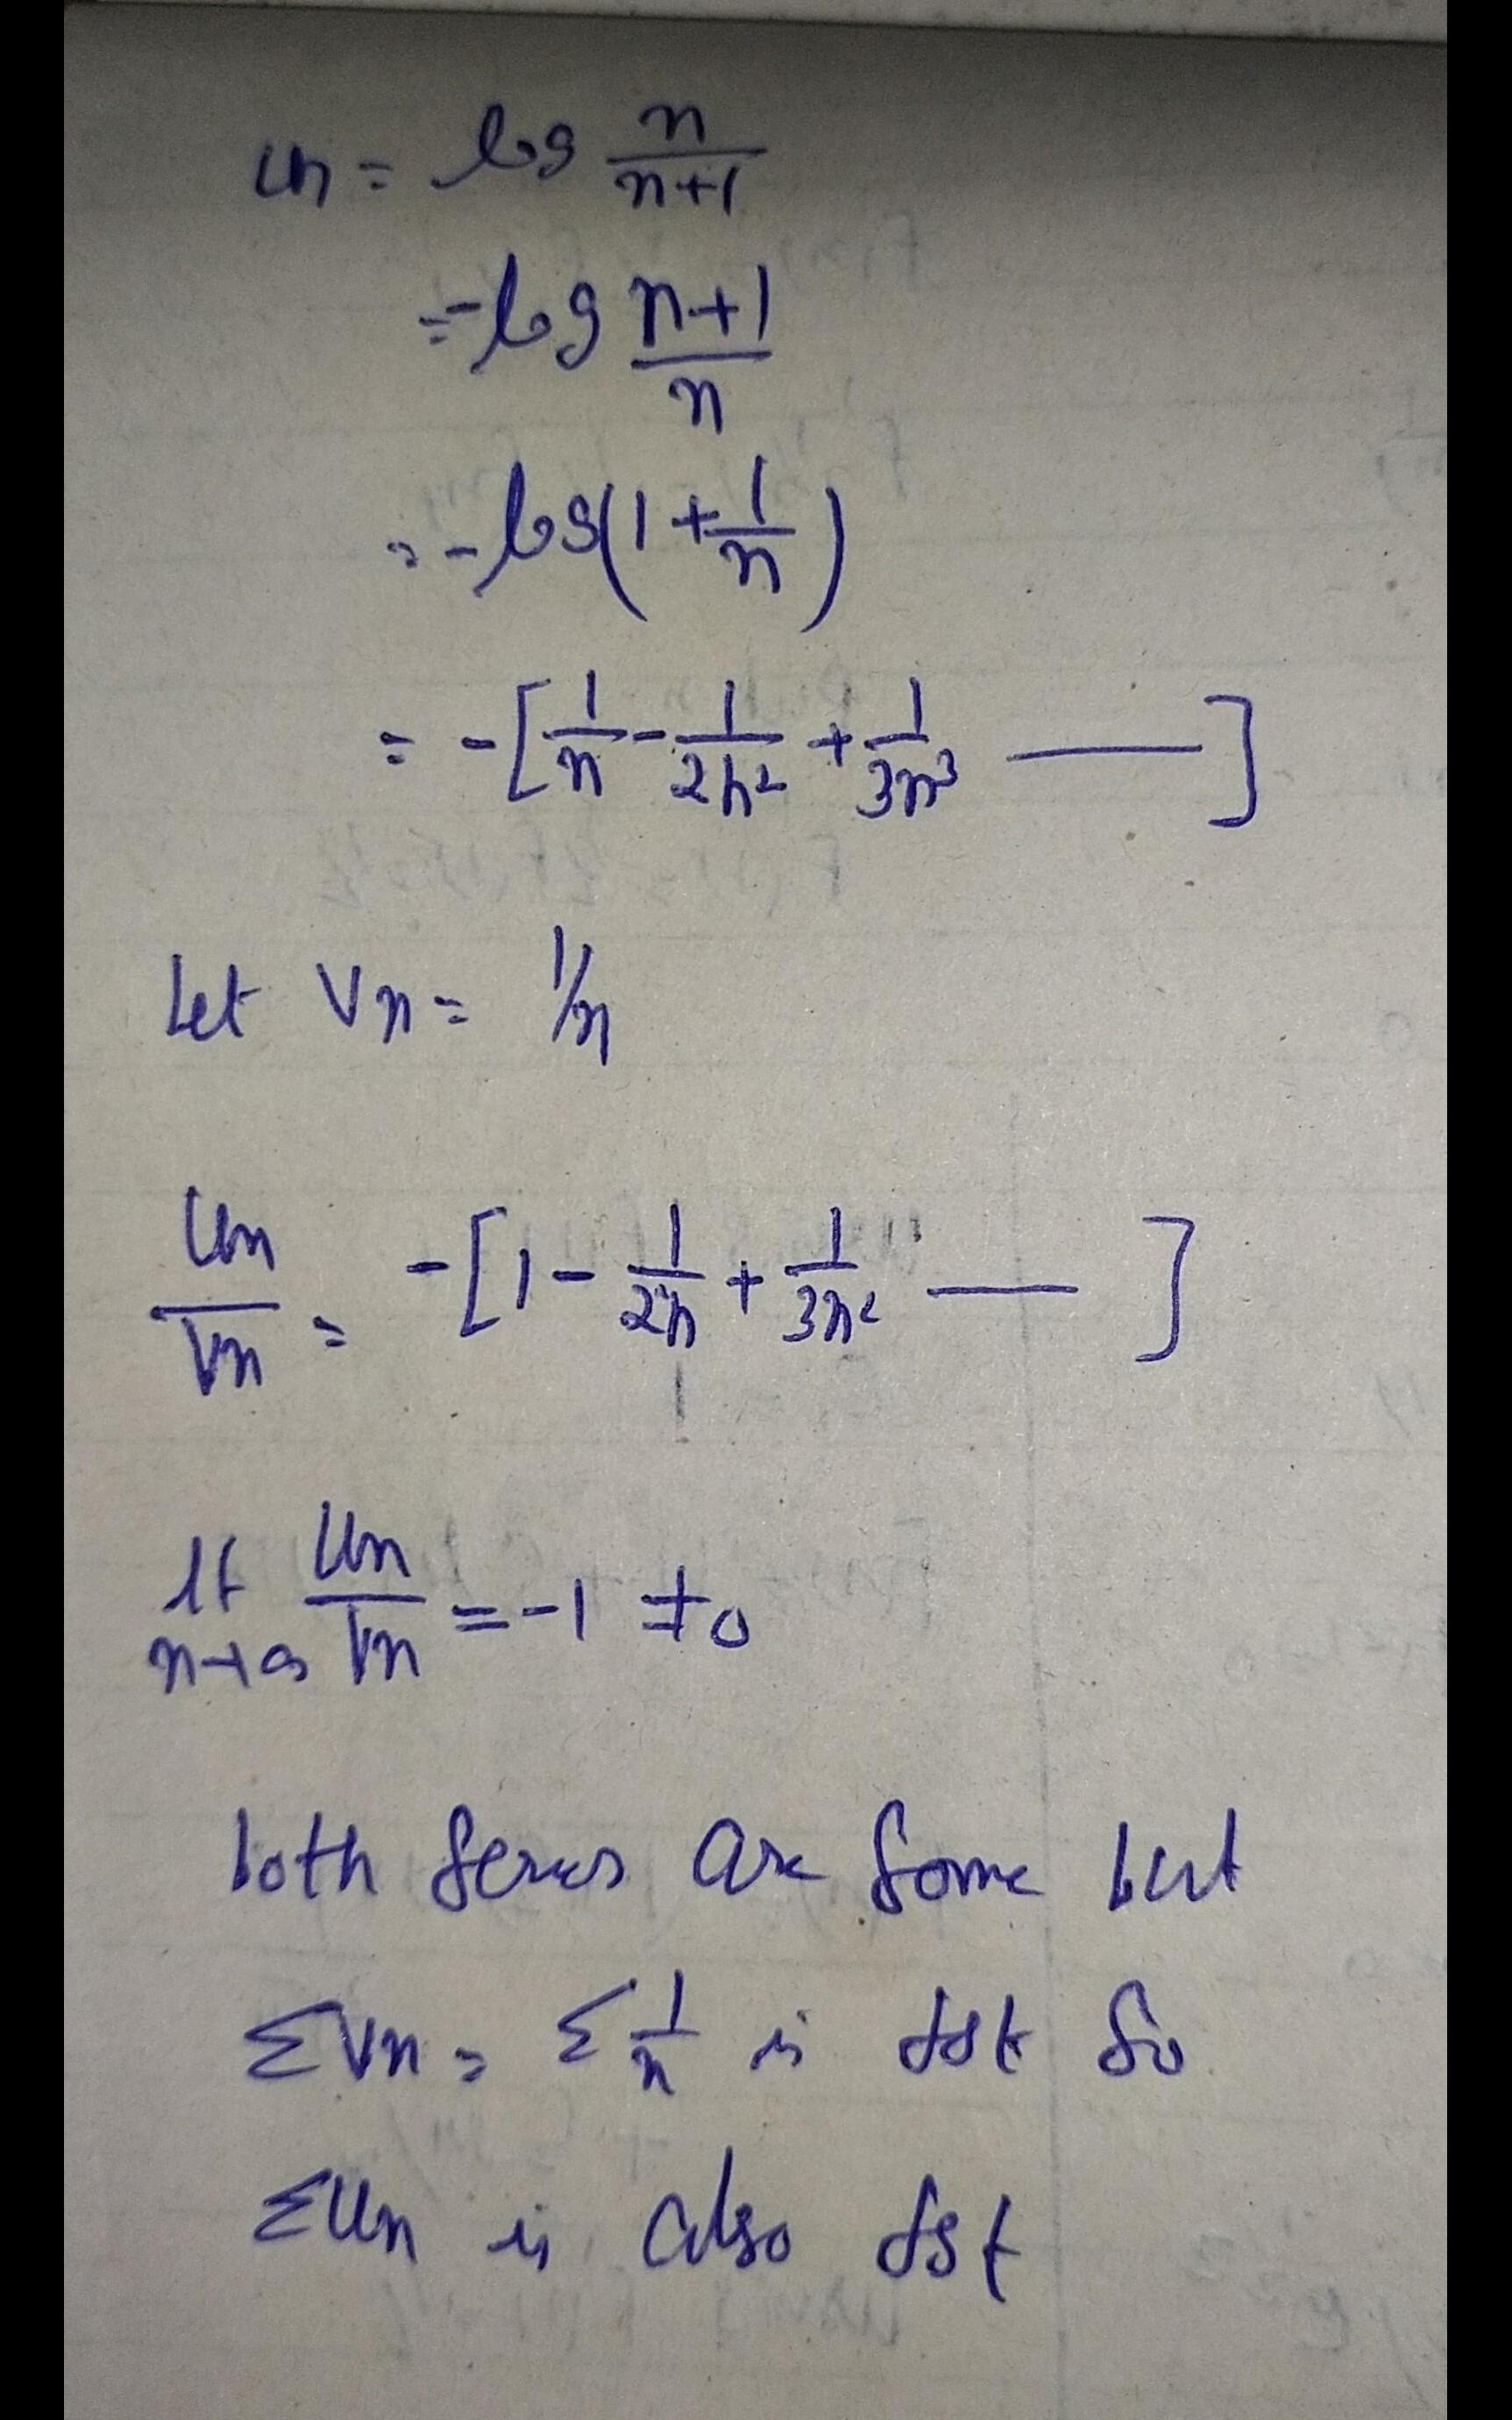 un = log n/n+1
= -log n+1/n
= -log(1+1/n)
= -[1/n - 1/2n² + 1/3n³ ——]
Let Vn = 1/n
Un/Vn = -[1 - 1/2n + 1/3n² —— ]
lt n→∞ Un/Vn = -1 ≠0
both series are same but
ΣVn = Σ 1/n is dgt So
ΣUn is also dgt